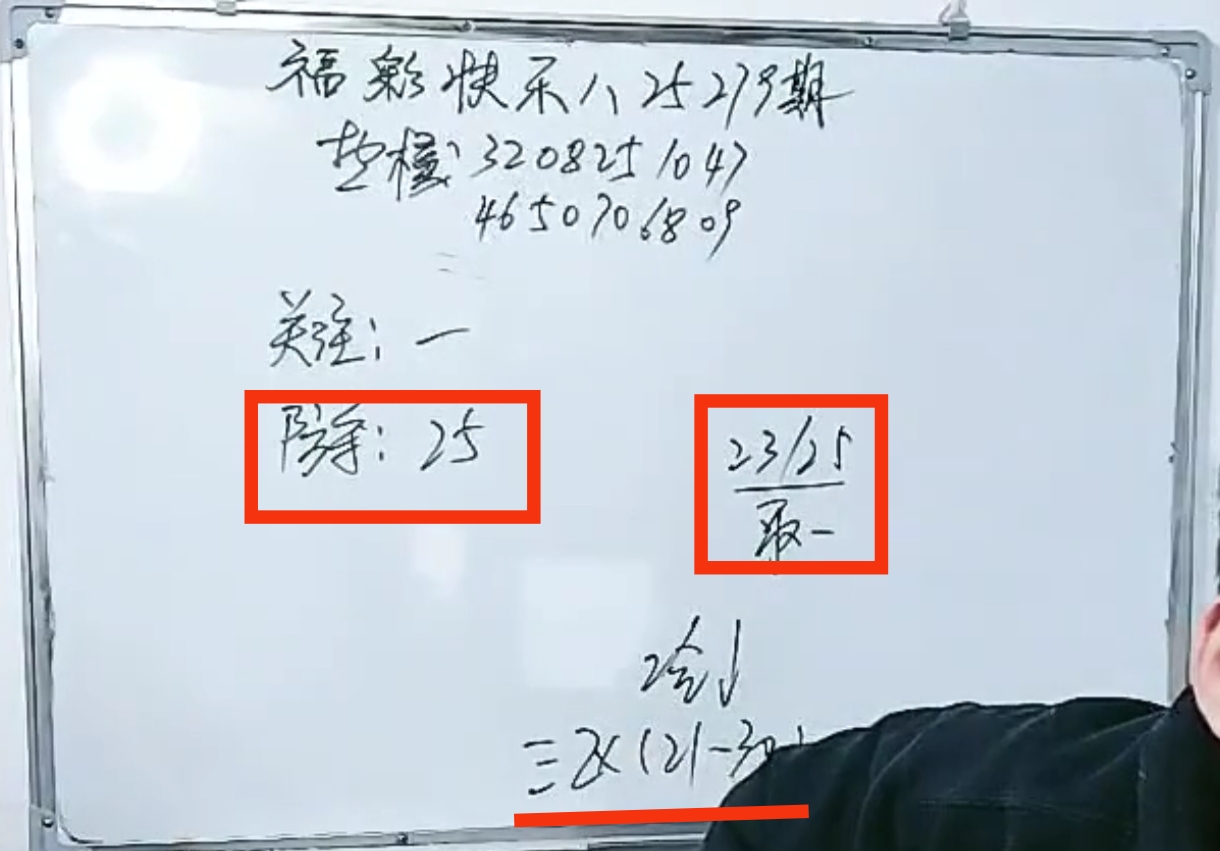 福彩快乐八25279期
垫楼: 3208251047
4650706809
关注: 一
防守: 25
23/25
取一
冷
三区(21-30)